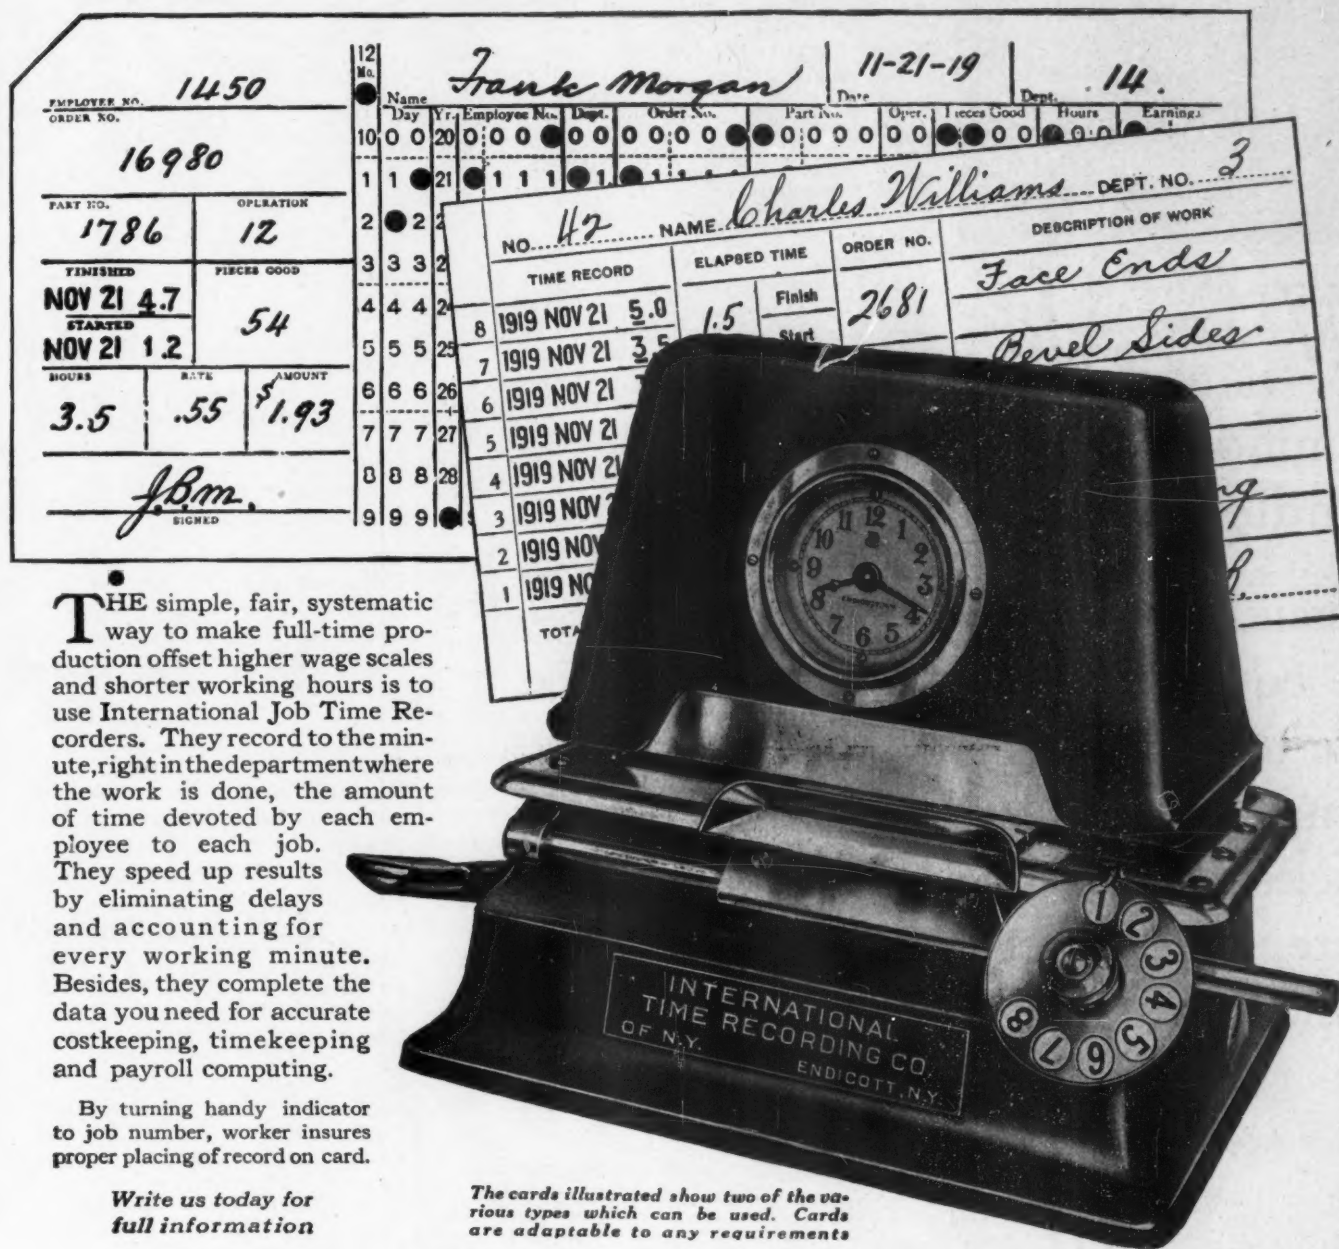 1450
EMPLOYEE NO.
ORDER NO.
16980
PART NO. OPERATION
1786 12
FINISHED PIECES GOOD
NOV 21 4.7
STARTED 54
NOV 21 1.2
HOURS RATE AMOUNT
3.5 .55 $1.93
J.B.M.
SIGNED
12
Mo.
Name Frank Morgan 11-21-19 Date Dept. 14.
Day Yr. Employee No. Dept. Order No. Part No. Oper. Pieces Good Hours Earnings
10 0 0 20 0 0 0 0 0 0 0 0 0 0 0 0 0 0 0 0 0 0
1 1 21 1 1 1 1
2 2 2
3 3 3 2
4 4 4 24
5 5 5 25
6 6 6 26
7 7 7 27
8 8 8 28
9 9 9
NO. 42 NAME Charles Williams DEPT. NO. 3
TIME RECORD ELAPSED TIME ORDER NO. DESCRIPTION OF WORK
8 1919 NOV 21 5.0 1.5 Finish 2681 Face Ends
7 1919 NOV 21 3.5 Start Bevel Sides
6 1919 NOV 21
5 1919 NOV 21
4 1919 NOV 21
3 1919 NOV 2
2 1919 NOV
1 1919 NO
TOTA
12 1 2 3 4 5 6 7 8 9 10 11
THE simple, fair, systematic
way to make full-time pro-
duction offset higher wage scales
and shorter working hours is to
use International Job Time Re-
corders. They record to the min-
ute, right in the department where
the work is done, the amount
of time devoted by each em-
ployee to each job.
They speed up results
by eliminating delays
and accounting for
every working minute.
Besides, they complete the
data you need for accurate
costkeeping, timekeeping
and payroll computing.
By turning handy indicator
to job number, worker insures
proper placing of record on card.
Write us today for
full information
INTERNATIONAL
TIME RECORDING CO.
OF N.Y.
ENDICOTT, N.Y.
1 2 3 4 5 6 7 8
The cards illustrated show two of the va-
rious types which can be used. Cards
are adaptable to any requirements